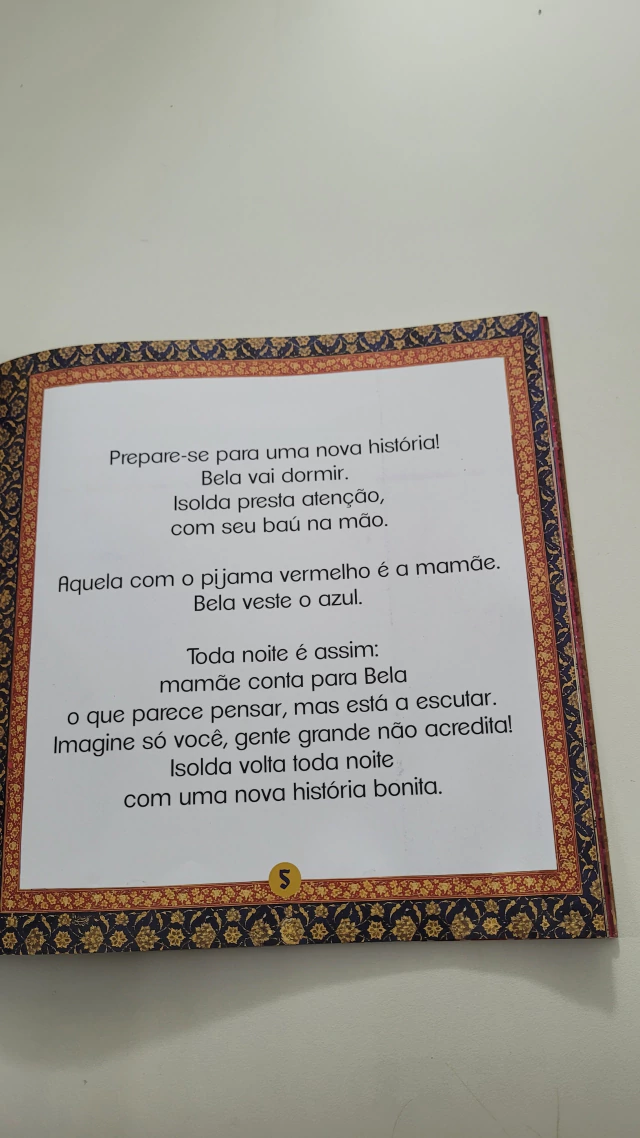 Prepare-se para uma nova história!
Bela vai dormir.
Isolda presta atenção,
com seu baú na mão.
Aquela com o pijama vermelho é a mamãe.
Bela veste o azul.
Toda noite é assim:
mamãe conta para Bela
o que parece pensar, mas está a escutar.
Imagine só você, gente grande não acredita!
Isolda volta toda noite
com uma nova história bonita.
5